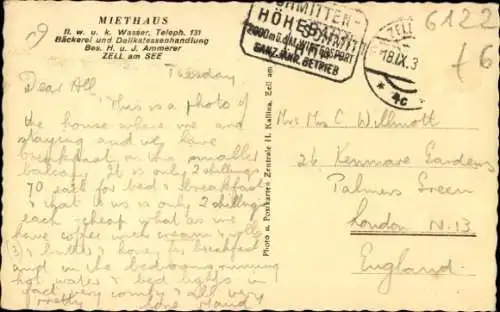 MIETHAUS
H. w. u. k. Wasser, Teleph. 131
Bäckerei und Delikatessenhandlung
Bes. H. u. J. Ammerer
ZELL am SEE
SCHMITTEN-
HÖHEBAHN
2000m ü.d.M. WINTERSPORT
GANZJÄHR. BETRIEB
ZELL
18.IX.3
* 4c *
6122
f6
Tuesday
Dear All,
This is a photo of
the house where we are
staying and we have
breakfast on the smaller
balcony. It is only 2 shillings
70 each for bed & breakfast
that is us only 2 shillings
each - cheap what as we
have coffee with cream & rolls
(3) & butter & honey for breakfast
and in the bedrooms running
hot water & bed lights in
fact very comfy & all very
pretty love Maud
Mrs Mrs C Willmott
26 Kenmare Gardens
Palmers Green
London N.13
England.
Photo u. Postkarten Zentrale H. Kallina, Zell am